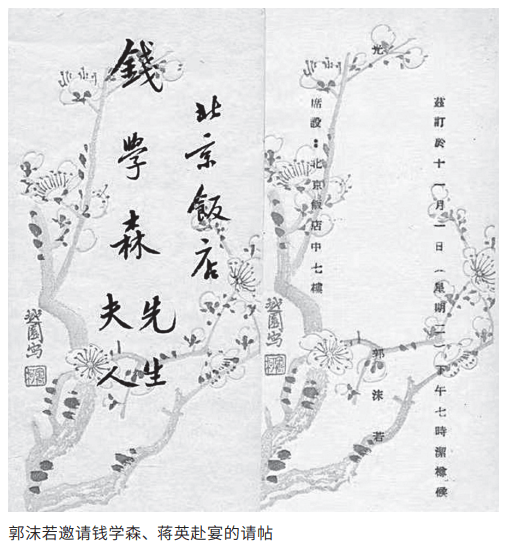 北京飯店
錢學森先生
夫人
越園写
茲訂於十一月一日(星期二)下午七時潔樽候
光
郭沫若
席設：北京飯店中七樓
越園写
郭沫若邀请钱学森、蒋英赴宴的请帖